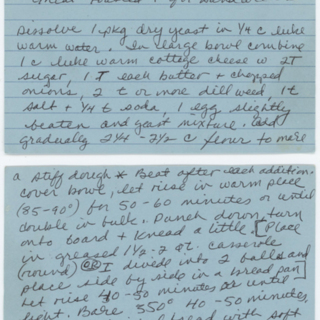 Great Toasted! for Sandwiches
Dissolve 1 pkg dry yeast in 1/4 c luke
warm water. In large bowl combine
1 c luke warm cottage cheese w 2T
sugar, 1 T each butter + chopped
onions, 2 t or more dill weed, 1 t
salt + 1/4 t soda, 1 egg slightly
beaten and yeast mixture. Add
gradually 2 1/4 - 2 1/2 c flour to make
a stiff dough * Beat after each addition.
cover bowl, let rise in warm place
(85-90°) for 50-60 minutes or until
double in bulk. Punch down, turn
onto board + knead a little. [Place
in greased 1 1/2-2 qt. casserole
(round) OR I divide into 2 balls and
place side by side in a bread pan]
Let rise 40-50 minutes or until
light. Bake 350° 40-50 minutes,
bread with soft